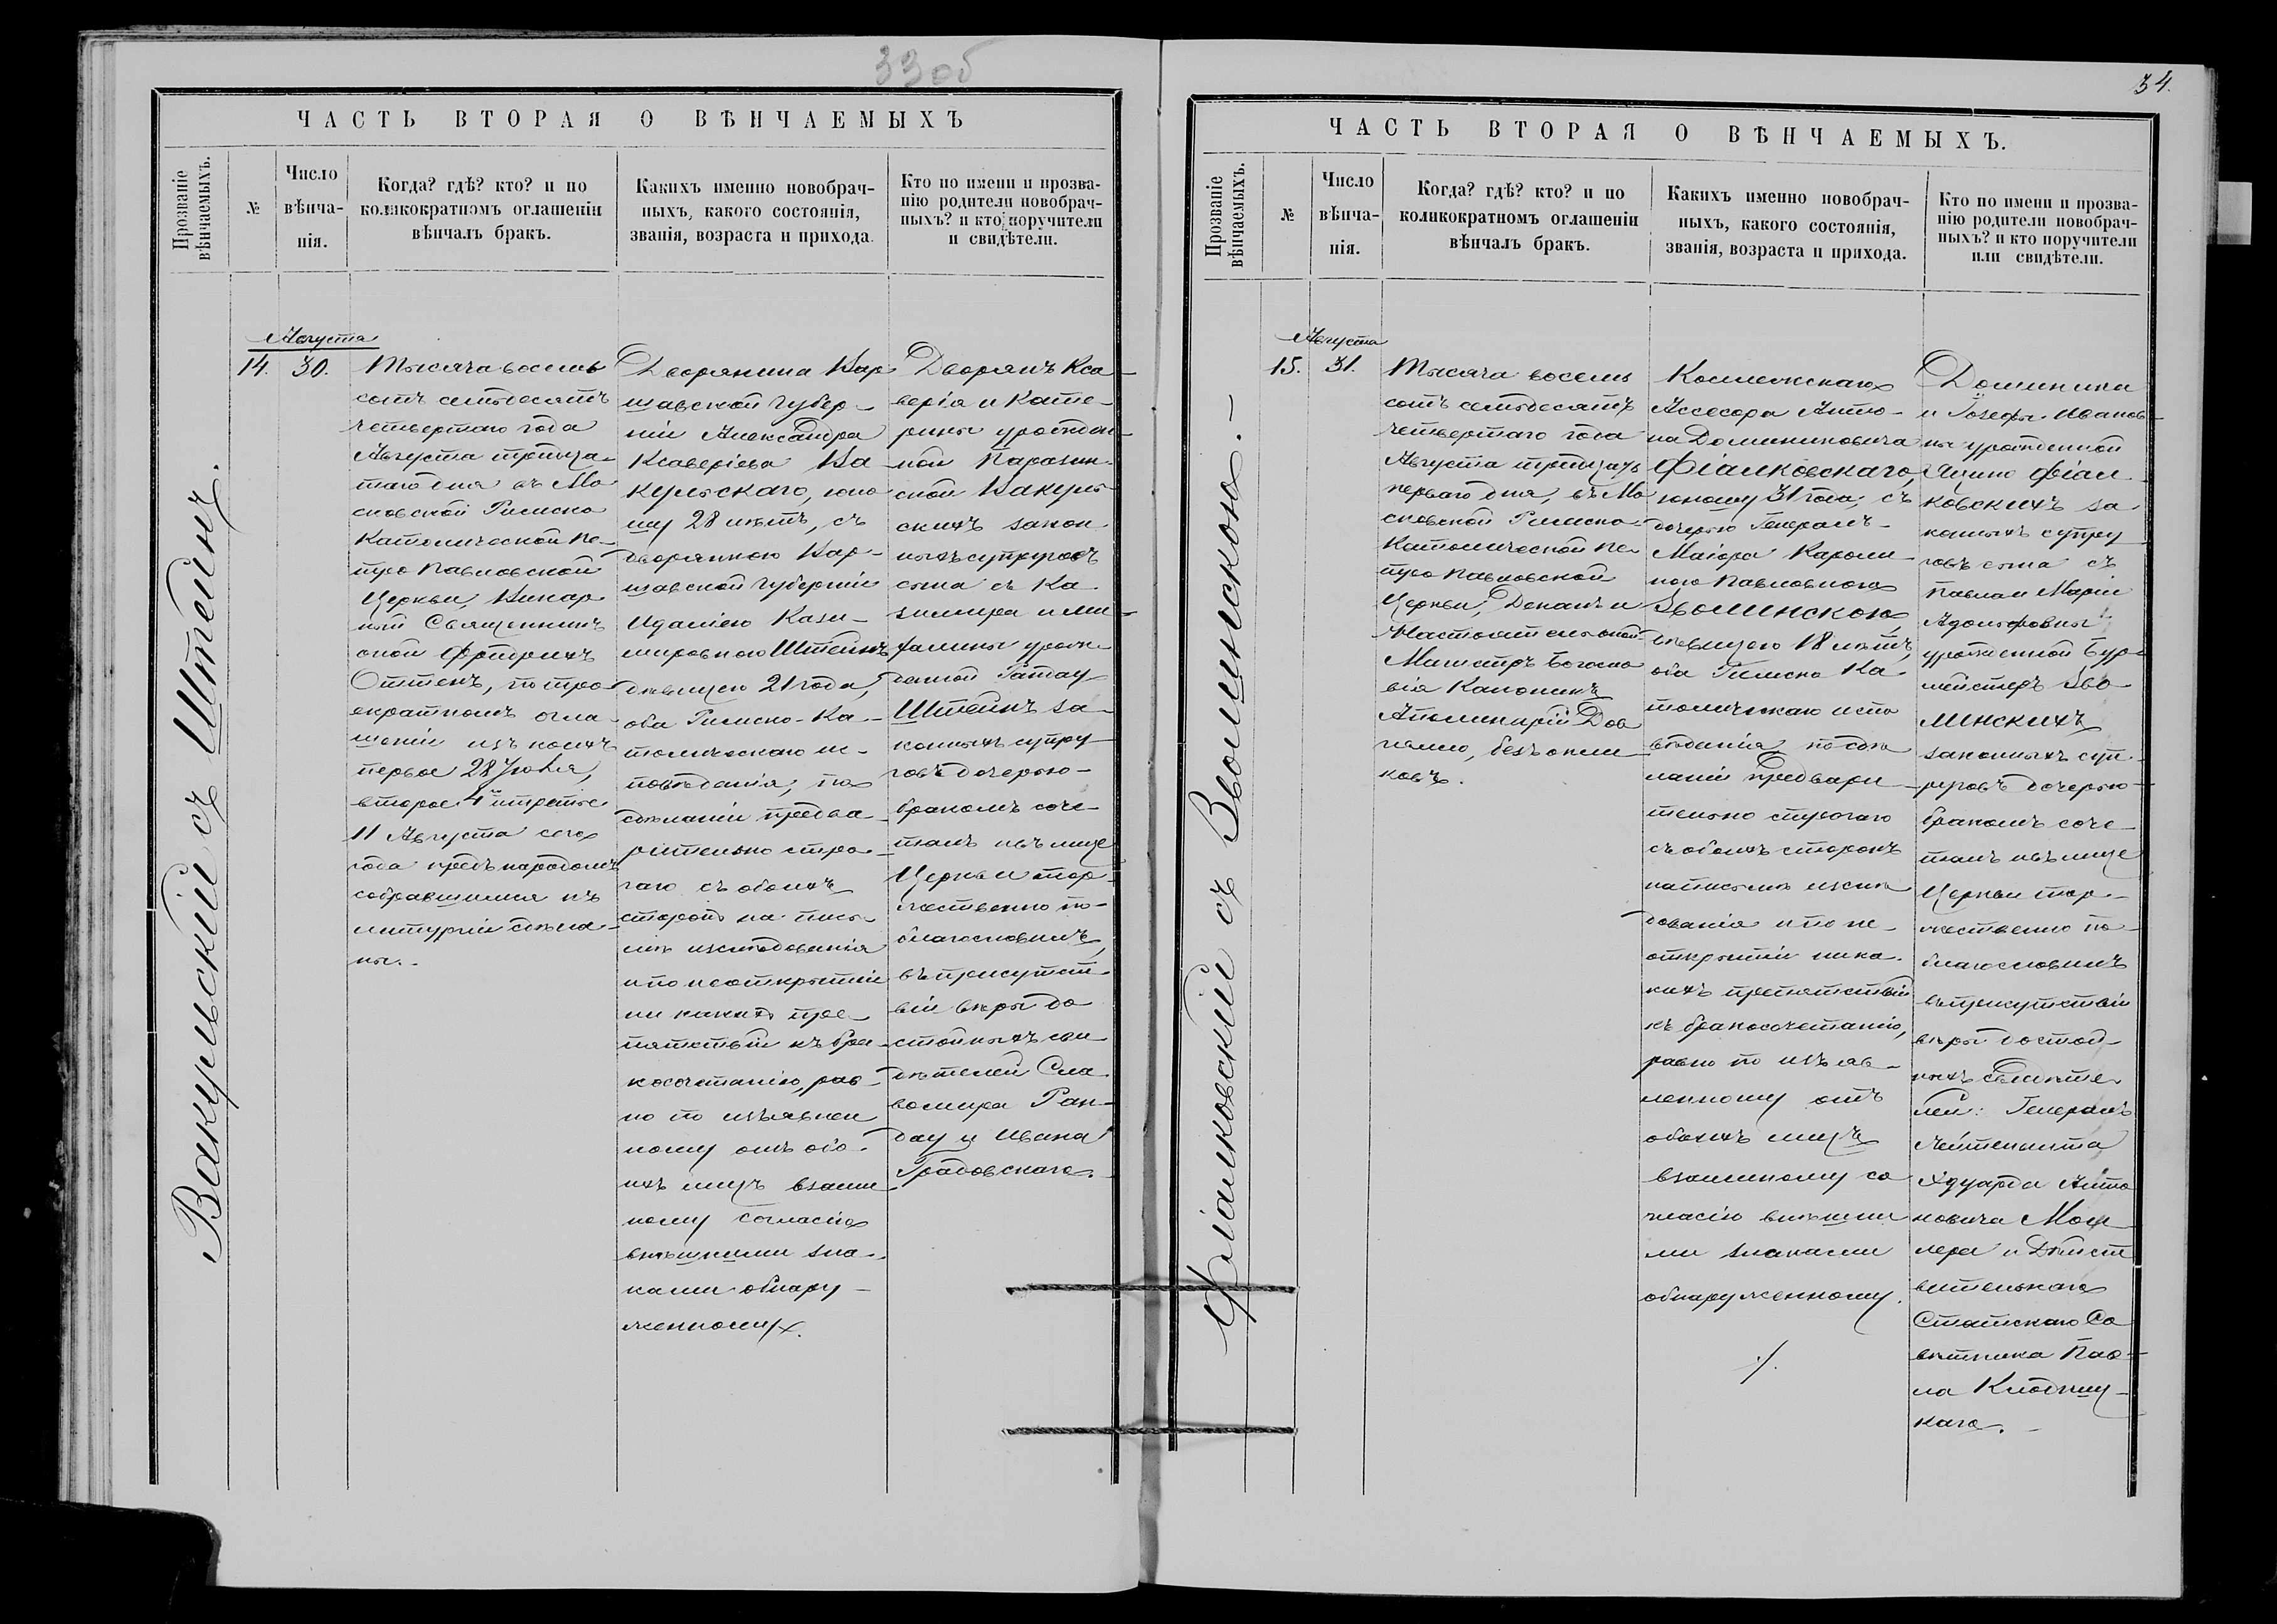 33 об
ЧАСТЬ ВТОРАЯ О ВѢНЧАЕМЫХЪ
Прозваніе
вѣнчаемыхъ.
№
Число
вѣнча-
нія.
Когда? гдѣ? кто? и по
коликократномъ оглашеніи
вѣнчалъ бракъ.
Какихъ именно новобрач-
ныхъ, какого состоянія,
званія, возраста и прихода.
Кто по имени и прозва-
нію родители новобрач-
ныхъ? и кто поручители
и свидѣтели.
Вакульскій съ Штейнъ.
Августа
14. 30.
Тысяча восемь
сотъ семьдесятъ
четвертаго года
Августа тридца-
таго дня въ Мо
сковской Римско
Католической Пе-
тро Павловской
Церкви, Викар
ный Священникъ
оной Фридрихъ
Оттенъ, по тро
екратномъ огла-
шеніи изъ коихъ
первое 28 Іюля,
второе 4 и третье
11 Августа сего
года предъ народомъ
собравшимся къ
литургіи сдѣла-
ны.-
Дворянина Вар
шавской Губер-
ніи Александра
Ксаверіева Ва
кульскаго, юно
шу 28 лѣтъ, съ
дворянкою Вар-
шавской Губерніи
Идаліею Кази-
мировною Штейнъ
дѣвицею 21 года,
оба Римско-Ка-
толическаго ис-
повѣданія, по
сдѣланіи предва-
рительно стро-
гаго съ обоихъ
сторонъ на пись-
мѣ изслѣдованія
и по неоткрытіи
ни какихъ пре-
пятствій къ бра-
косочетанію, рав-
но по изъявлен
ному отъ обо-
ихъ лицъ взаим
ному согласію
внѣшними зна-
ками обнару-
женному.
Дворянъ Кса-
верія и Кате-
рины урожден-
ной Паразин-
ской Вакуль
скихъ закон
ныхъ супруговъ
сына съ Ка
зимира и ми-
фалины урож-
денной Рандау
Штейнъ за-
конныхъ супру
говъ дочерью-
бракомъ соче-
талъ и въ лице
Церкви тор-
жественно по-
благословилъ,
въ присутст
віи вѣры до
стойныхъ сви
дѣтелей Сла
вомира Ран-
дау и Ивана
Градовскаго.
34.
ЧАСТЬ ВТОРАЯ О ВѢНЧАЕМЫХЪ.
Прозваніе
вѣнчаемыхъ.
№
Число
вѣнча-
нія.
Когда? гдѣ? кто? и по
коликократномъ оглашеніи
вѣнчалъ бракъ.
Какихъ именно новобрач-
ныхъ, какого состоянія,
званія, возраста и прихода.
Кто по имени и прозва-
нію родители новобрач-
ныхъ? и кто поручители
или свидѣтели.
Фіалковскій съ Зволинскою.-
Августа
15. 31.
Тысяча восемь
сотъ семьдесятъ
четвертаго года
Августа тридцать
перваго дня, въ Мо
сковской Римско-
Католической Пе-
тро Павловской
Церкви, Деканъ и
Настоятель оной
Магистръ Богосло
вія Каноникъ
Аполинарій Дов
гялло, безъ окли
ковъ.
Коллежскаго
Ассесора Анто-
на Доминиковича
Фіалковскаго,
юношу 31 года, съ
дочерью Генералъ-
Маіора Кароли-
ною Павловною
Зволинскою
дѣвицею 18 лѣтъ,
оба Римско Ка-
толическаго испо
вѣданія, по сдѣ
ланіи предвари
тельно строгаго
съ обоихъ сторонъ
на письмѣ изслѣ
дованія и по не-
открытіи ника-
кихъ препятствій
къ бракосочетанію,
равно по изъяв-
ленному отъ
обоихъ лицъ
взаимному со
гласію внѣшни
ми знаками
обнаруженному.
./.
Доминика
и Іозефы Иванов-
ны урожденной
Фіал
ковскихъ за-
конныхъ супру
говъ сына съ
Павла и Маріи
Адольфовны
урожденной Бур-
мейстеръ Зво-
линскихъ
законныхъ суп-
руговъ дочерью-
бракомъ соче-
талъ и въ лице
Церкви тор-
жественно по-
благословилъ
въ присутствіи
вѣры достой-
ныхъ свидѣте
лей: Генералъ
Лейтенанта
Эдуарда Анто
новича Мол
лера и Дѣйст
вительнаго
Статскаго Со
вѣтника Пав-
ла Клодниц-
каго.-